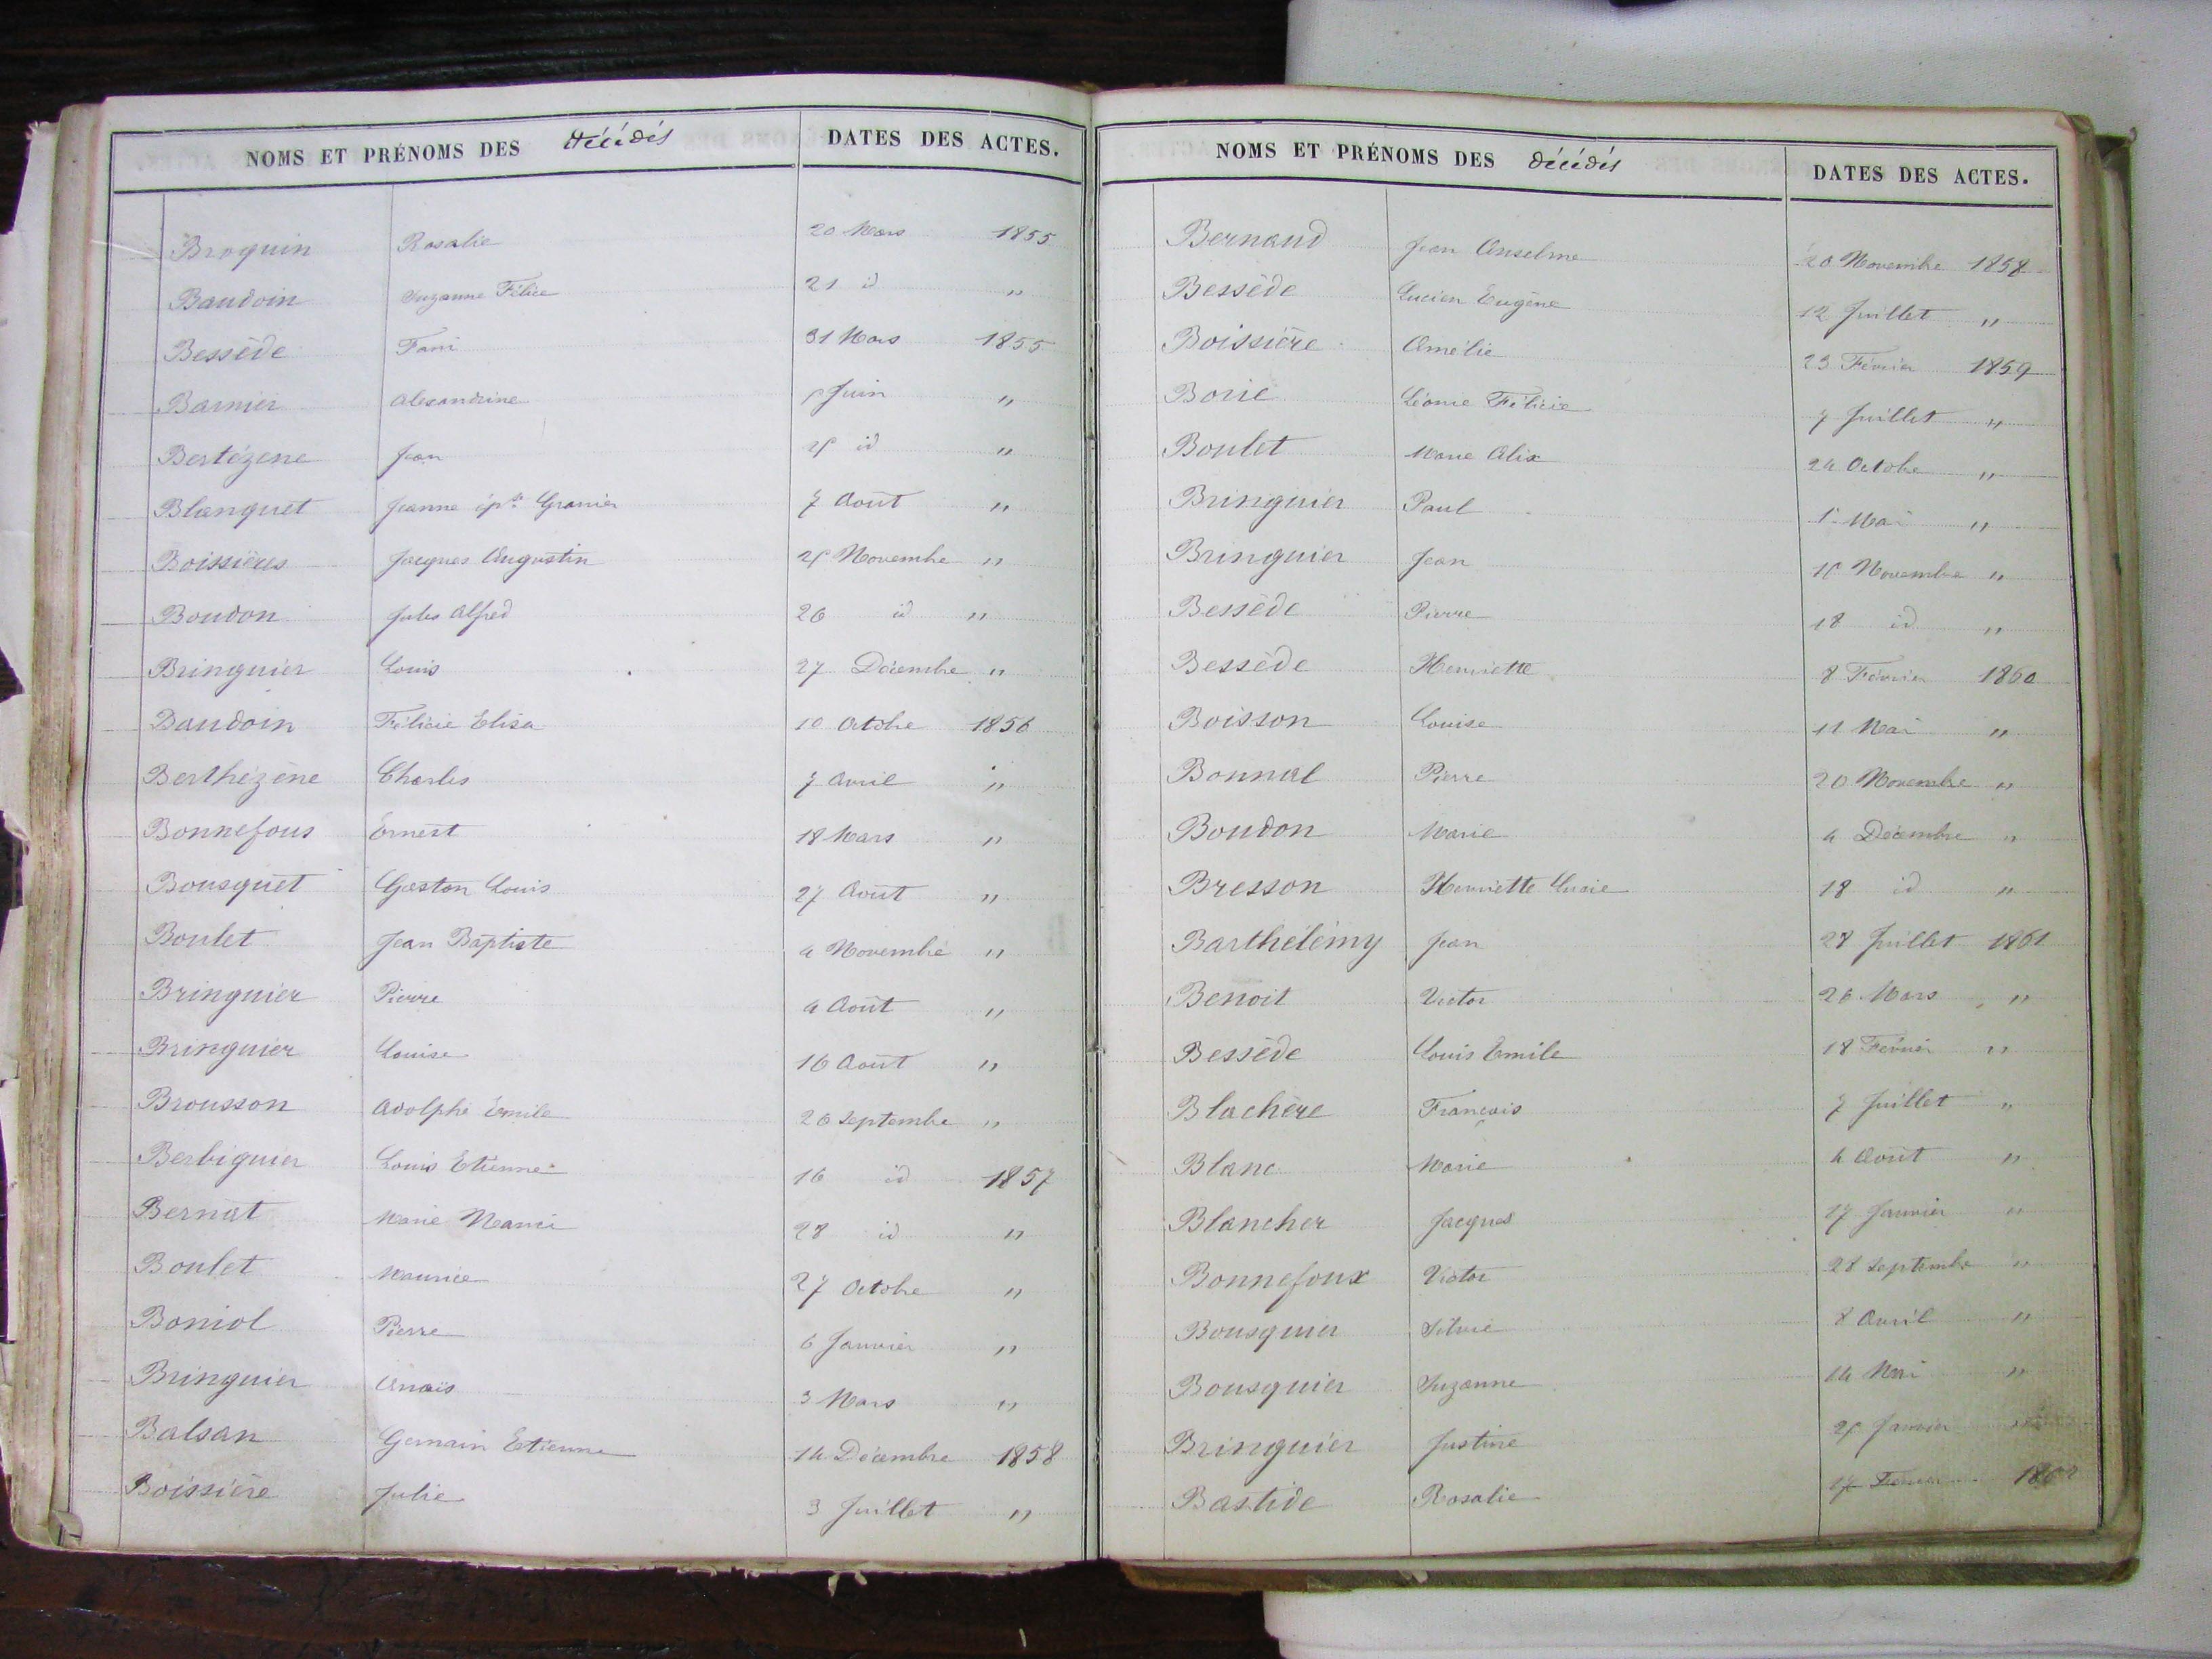 NOMS ET PRÉNOMS DES décédés DATES DES ACTES.
Broquin Rosalie 20 Mars 1855
Baudoin Suzanne Félice 21 id "
Bessède Fani 31 Mars 1855
Barnier Alexandrine Juin "
Bertézene Jean id "
Blanquet Jeanne épse Granier 7 Août "
Boissières Jacques Augustin Novembre "
Boudon Jules Alfred 26 id "
Bringuier Louis 27 Décembre "
Baudoin Félicie Elisa 10 Octobre 1856
Berthézène Charles 7 Avril "
Bonnefous Ernest 18 Mars "
Bousquet Gaston Louis 27 Août "
Boulet Jean Baptiste 4 Novembre "
Bringuier Pierre 4 Août "
Bringuier Louise 16 Août "
Brousson Adolphe Emile 26 Septembre "
Berbiguier Louis Etienne 16 id 1857
Bernat Marie Nanci 28 id "
Boulet Maurice 27 Octobre "
Boniol Pierre 6 Janvier "
Bringuier Anaïs 3 Mars "
Balsan Germain Etienne 14 Décembre 1858
Boissière Julie 3 Juillet "
NOMS ET PRÉNOMS DES décédés DATES DES ACTES.
Bernaud Jean Anselme 20 Novembre 1858
Bessède Lucien Eugène 12 Juillet "
Boissière Amélie 23 Février 1859
Borie Léonie Félicie 7 Juillet "
Boulet Marie Alix 24 Octobre "
Bringuier Paul 1er Mai "
Bringuier Jean Novembre "
Bessède Pierre 18 id "
Bessède Henriette 8 Février 1860
Boisson Louise 11 Mai "
Bonnal Pierre 20 Novembre "
Boudon Marie 4 Décembre "
Bresson Henriette Lucie 18 id "
Barthélémy Jean 28 Juillet 1861
Benoit Victor 26 Mars "
Bessède Louis Emile 18 Février "
Blachère François 7 Juillet "
Blanc Marie 4 Août "
Blancher Jacques 17 Janvier "
Bonnefoux Victor 28 Septembre "
Bousquier Silvie 8 Avril "
Bousquier Suzanne 14 Mai "
Bringuier Justine Janvier "
Bastide Rosalie 17 Février 1862